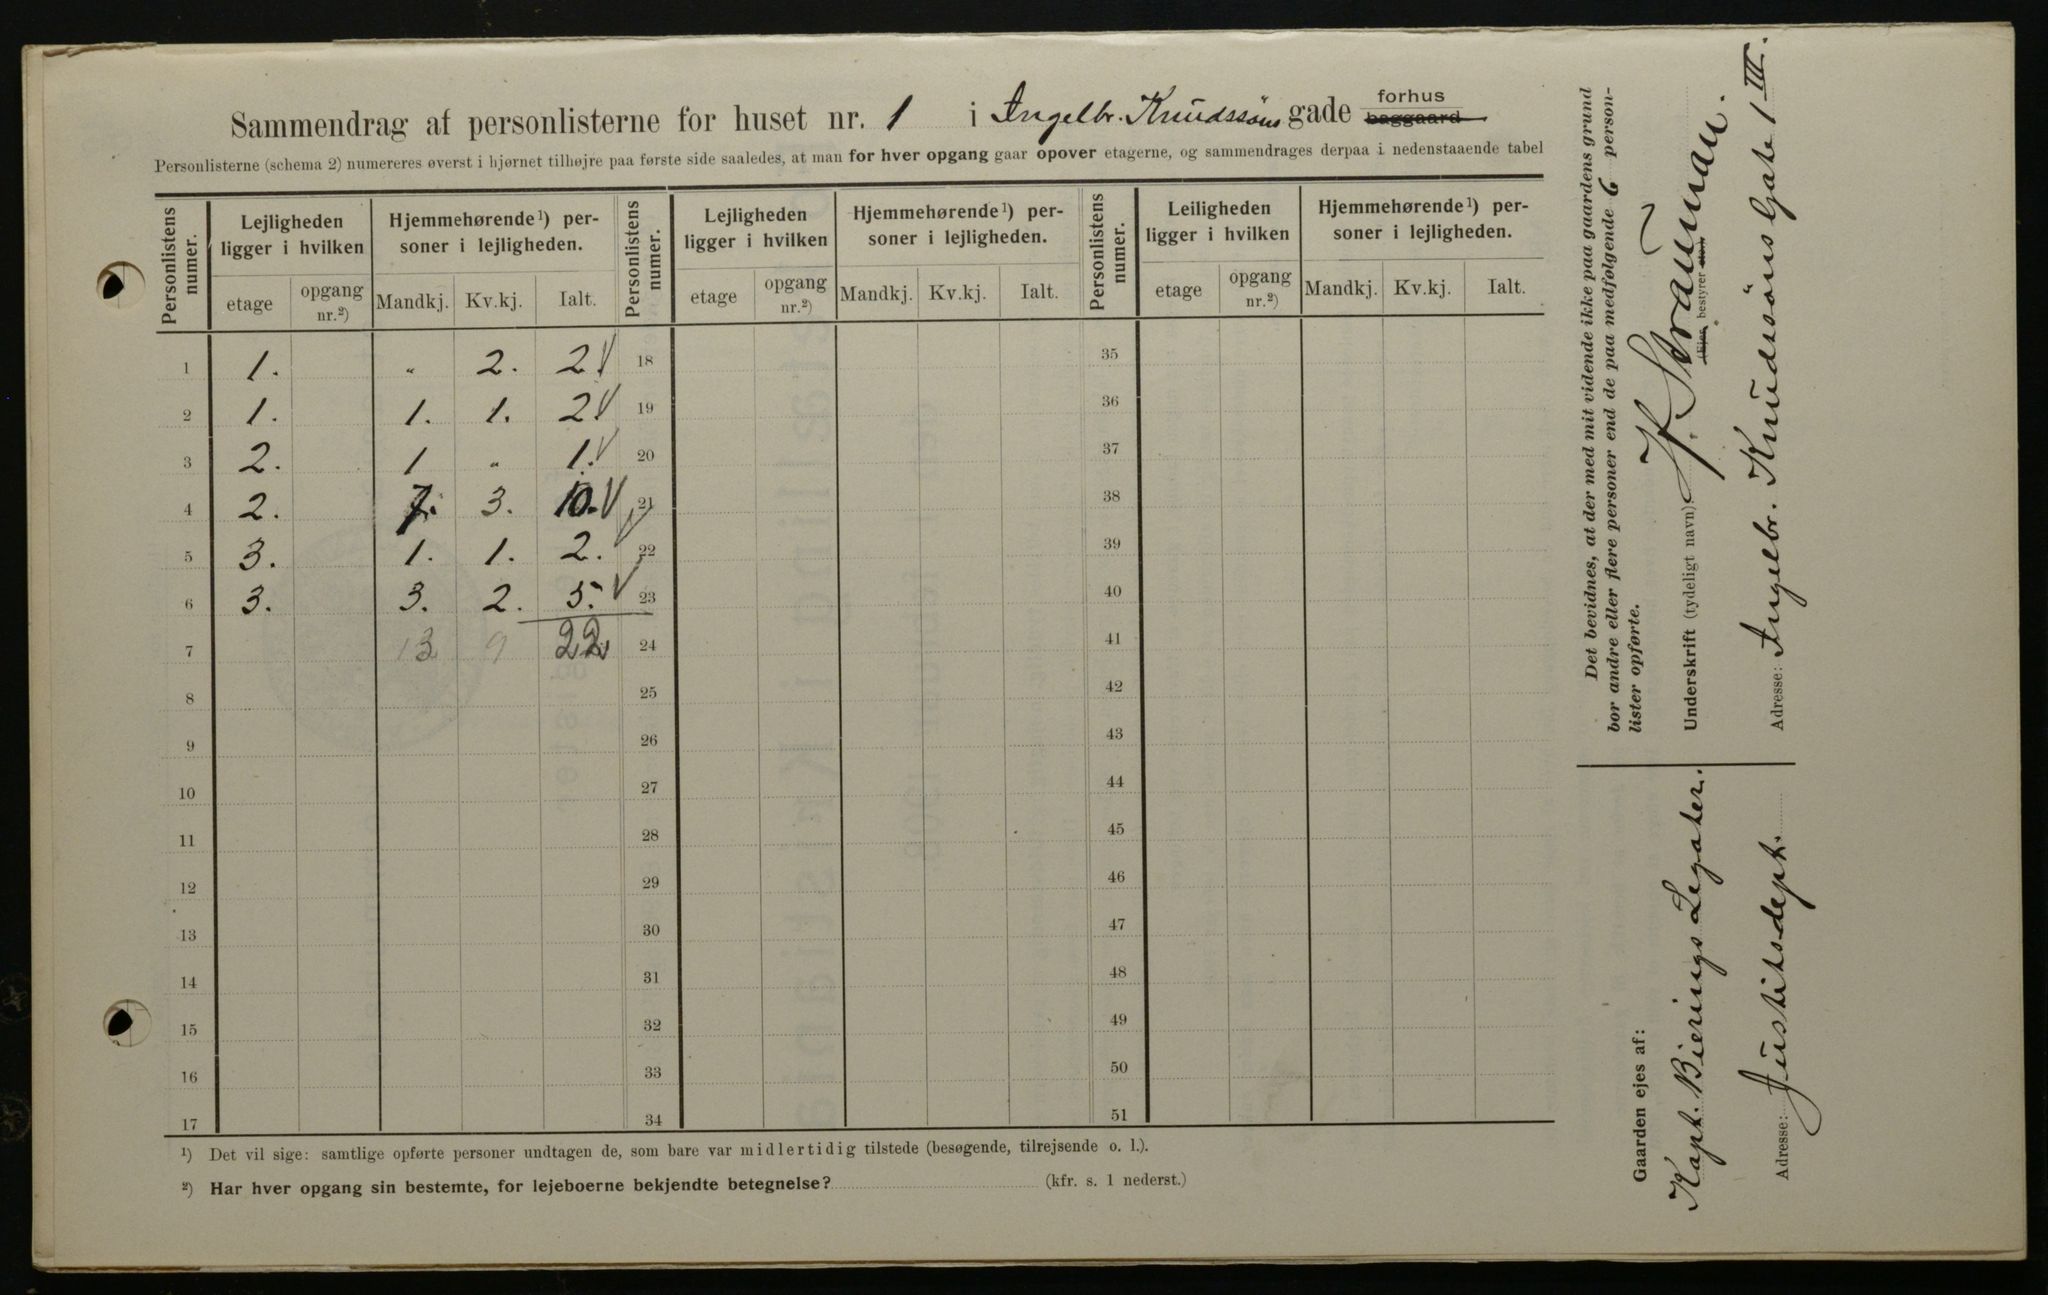 Sammendrag af personlisterne for huset nr. 1 i Ingelbr. Knudssöns gade forhus baggaard
Personlisterne (schema 2) numereres øverst i hjørnet tilhøjre paa første side saaledes, at man for hver opgang gaar opover etagerne, og sammendrages derpaa i nedenstaaende tabel
Personlistens numer. Lejligheden ligger i hvilken Hjemmehørende¹) personer i lejligheden. Personlistens numer. Lejligheden ligger i hvilken Hjemmehørende¹) personer i lejligheden. Personlistens numer. Leiligheden ligger i hvilken Hjemmehørende¹) personer i lejligheden.
etage opgang nr.²) Mandkj. Kv.kj. Ialt. etage opgang nr.²) Mandkj. Kv.kj. Ialt. etage opgang nr.²) Mandkj. Kv.kj. Ialt.
1 1. „ 2. 2 √ 18 35
2 1. 1. 1. 2 √ 19 36
3 2. 1 „ 1. √ 20 37
4 2. 7. 3. 10. √ 21 38
5 3. 1. 1. 2. √ 22 39
6 3. 3. 2. 5. √ 23 40
7 13 9 22 24 41
8 25 42
9 26 43
10 27 44
11 28 45
12 29 46
13 30 47
14 31 48
15 32 49
16 33 50
17 34 51
¹) Det vil sige: samtlige opførte personer undtagen de, som bare var midlertidig tilstede (besøgende, tilrejsende o. l.).
²) Har hver opgang sin bestemte, for lejeboerne bekjendte betegnelse? (kfr. s. 1 nederst.)
Det bevidnes, at der med mit vidende ikke paa gaardens grund
bor andre eller flere personer end de paa medfølgende 6 person-
lister opførte.
Underskrift (tydeligt navn) H. Straüman.
(Ejer, bestyrer
Adresse: Ingelbr. Knüdssöns Gate 1 III.
Gaarden ejes af:
Kapt. Bierings Legater.
Adresse: Justitsdept.